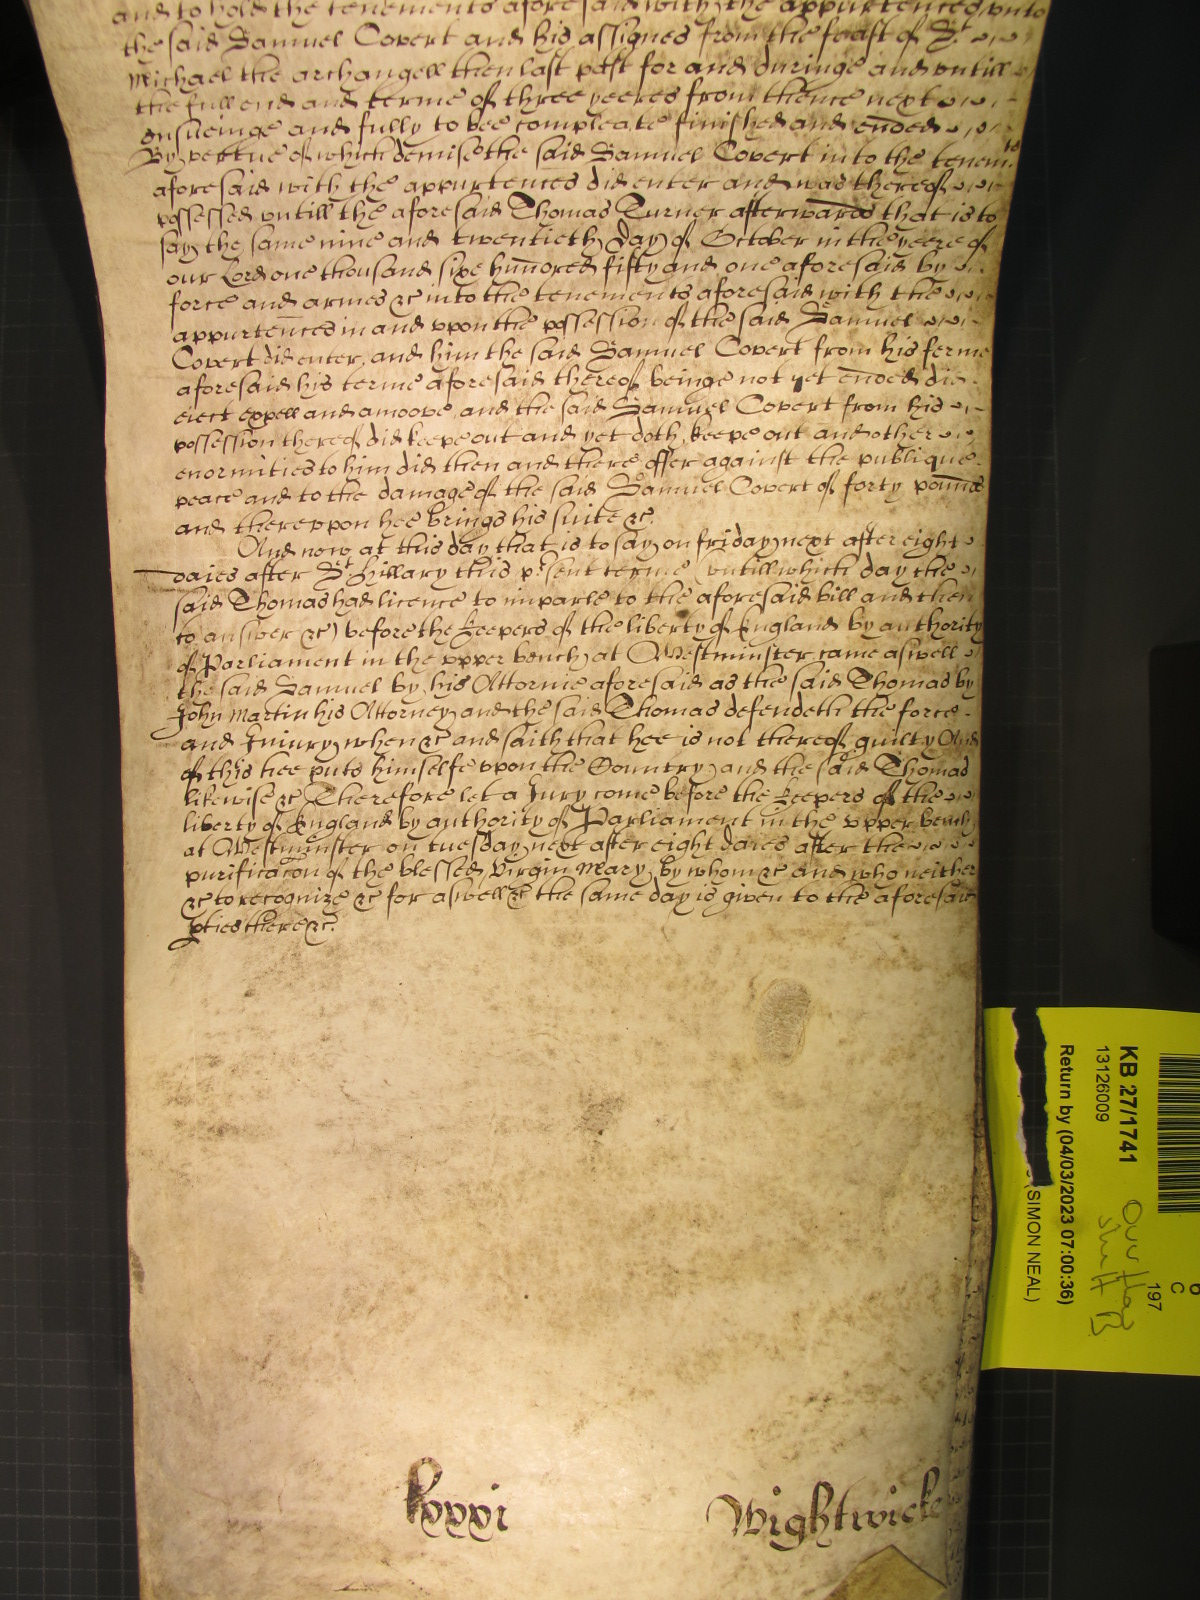 and to hold the tenements aforesaid with the appurtenc̄es unto
the said Samuel Covert and his assignes from the feast of St
Michael the archangell then last past for and duringe and untill
the full end and terme of three yeeres from thence next
ensueinge and fully to bee compleate finished and ended
By vertue of which demise the said Samuel Covert into the tenemts
aforesaid with the appurtences did enter and was thereof
possessed untill the aforesaid Thomas Turner afterwards that is to
say the same nine and twentieth day of October in the yeere of
our Lord one thousand sixe hundred fifty and one aforesaid by
force and armes &c into the tenements aforesaid with the
appurtences in and upon the possession of the said Samuel
Covert did enter, and him the said Samuel Covert from his ferme
aforesaid his terme aforesaid thereof beinge not yet ended did
eiect expell and amoove, and the said Samuel Covert from his
possession thereof did keepe out and yet doth keepe out and other
enormities to him did then and there offer against the publique
peace and to the damage of the said Samuel Covert of forty pounds
and thereuppon hee brings his suite &c.
And now at this day that is to say on friday next after eight
daies after St Hillary this p̱sent terme (untill which day the
said Thomas had licence to imparle to the aforesaid bill and then
to answer &c) before the keepers of the liberty of England by authority
of Parliament in the upper bench at Westminster came aswell
the said Samuel by his Attornie aforesaid as the said Thomas by
John Martin his Attorney and the said Thomas defendeth the force
and Iniury when &c and saith that hee is not thereof guilty And
of this hee puts himselfe upon the Country and the said Thomas
likewise &c Therefore let a Jury come before the keepers of the
liberty of England by authority of Parliament in the upper bench
at Westminster on tuesday next after eight daies after the
purificacon of the blessed Virgin Mary by whom &c and who neither
&c to recognize &c for aswell &c the same day is given to the aforesaid
p̱ties there &c.
lxxxi Wightwicke
KB 27/1741
13126009
Return by (04/03/2023 07:00:36)
(SIMON NEAL)
197
C